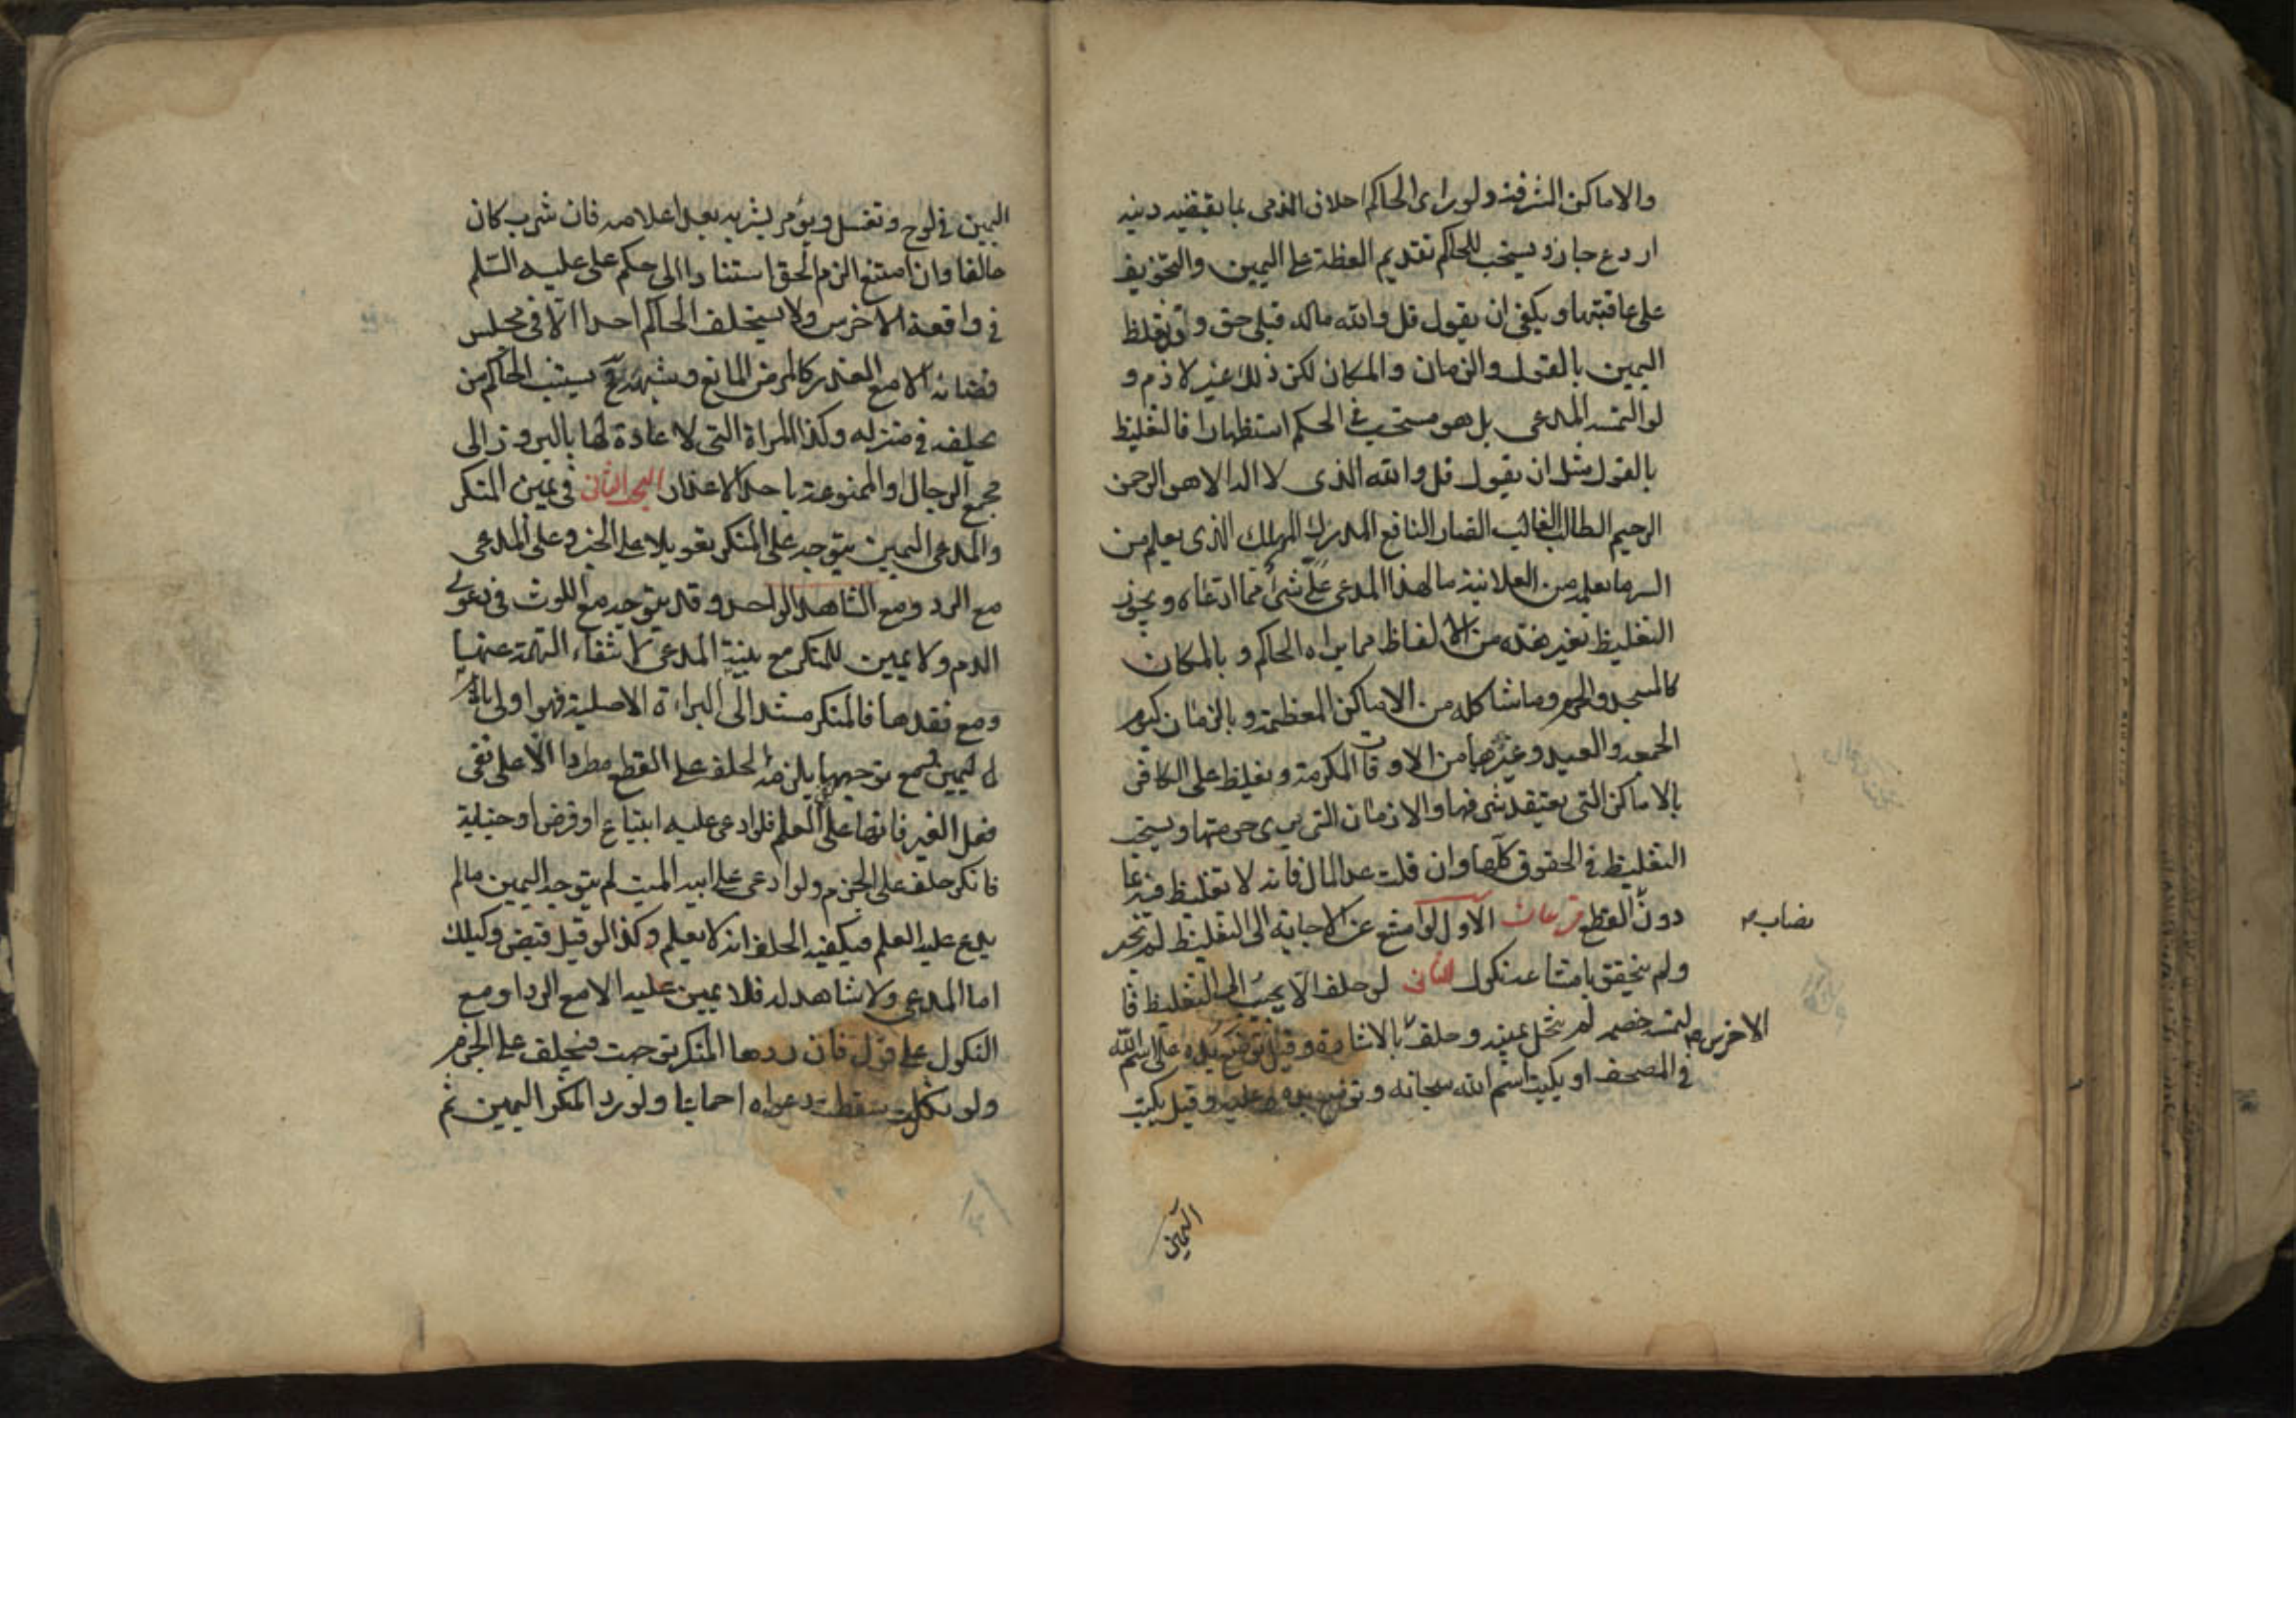 والاماكن الشرفة ولو راى الحاكم احلاف الذمى بما يقتضيه دينه
اردع جاز ويستحب للحاكم تقديم العظة على اليمين والتخويف
على عاقبتها ويكفى ان يقول قل والله ماله قبلى حق وقد يغلظ
اليمين بالقول والزمان والمكان لكن ذلك غير لازم و
لو التمسه المدعى بل هو مستحب فى الحكم استظهارا فالتغليظ
بالقول مثل ان يقول قل والله الذى لا اله الا هو الرحمن
الرحيم الطالب الغالب الضار النافع المدرك المهلك الذى يعلم من
السر ما يعلمه من العلانية ما لهذا المدعى علىّ شئ مما ادعاه ويجوز
التغليظ بغير هذه من الالفاظ مما يراه الحاكم و بالمكان
كالمسجد والحرم وما شاكله من الاماكن المعظمة وبالزمان كيوم
الجمعه والعيد وغيرها من الاوقات المكرمة ويغلظ على الكافر
بالاماكن التى يعتقد شرفها والازمان التى يرى حرمتها ويستحب
التغليظ فى الحقوق كلها وان قلت عدا المال فانه لا تغليظ فيه عما
دون القطع فرعان الاول لو امتنع عن الاجابة الى التغليظ لم يجبر
نصاب ص
ولم يتحقق بامتناعه نكول الثانى لو حلف الا يجيب الى التغليظ فا
لتمسه خصمه لم تنحل يمينه وحلف بالاشارة وقيل توضع يده على اسم الله
الاخرس ص
فى المصحف او يكتب اسم الله سبحانه وتوضع يده عليه وقيل يكتب
اليمين
اليمين فى لوح وتغسل ويؤمر بشربه بعد اعلامه فان شرب كان
حالفا وان امتنع الزم الحق استنادا الى حكم على عليه السلم
فى واقعة الاخرس ولا يستحلف الحاكم احدا الا فى مجلس
قضائه الا مع العذر كالمرض المانع وشبهه فح يستنيب الحاكم من
يحلفه فى منزله وكذا المراة التى لا عادة لها بالبروز الى
مجمع الرجال او الممنوعة باحد الاعذار البحث الثانى فى يمين المنكر
والمدعى اليمين يتوجه على المنكر تعويلا على الخبر وعلى المدعى
مع الرد ومع الشاهد الواحد وقد يتوجه مع اللوث فى دعوى
الدم ولا يمين للمنكر مع بينة المدعى لانتفاء التهمة عنها
ومع فقدها فالمنكر مستند الى البراءة الاصلية فهو اولى
باليمين ومع توجهها يلزمه الحلف على القطع مطردا الا على نفى
فعل الغير فانها على العلم فلو ادعى عليه ابتياع او قرض او جناية
فانكر حلف على الجزم ولو ادعى على ابيه الميت لم يتوجه اليمين مالم
يدع عليه العلم فيكفيه الحلف انه لا يعلم وكذا لو قيل قبض وكيلك
اما المدعى ولا شاهد له فلا يمين عليه الا مع الرد او مع
النكول على قول فان ردها المنكر توجهت فيحلف على الجزم
ولو نكل سقطت دعواه اجماعا ولو رد المنكر اليمين ثم